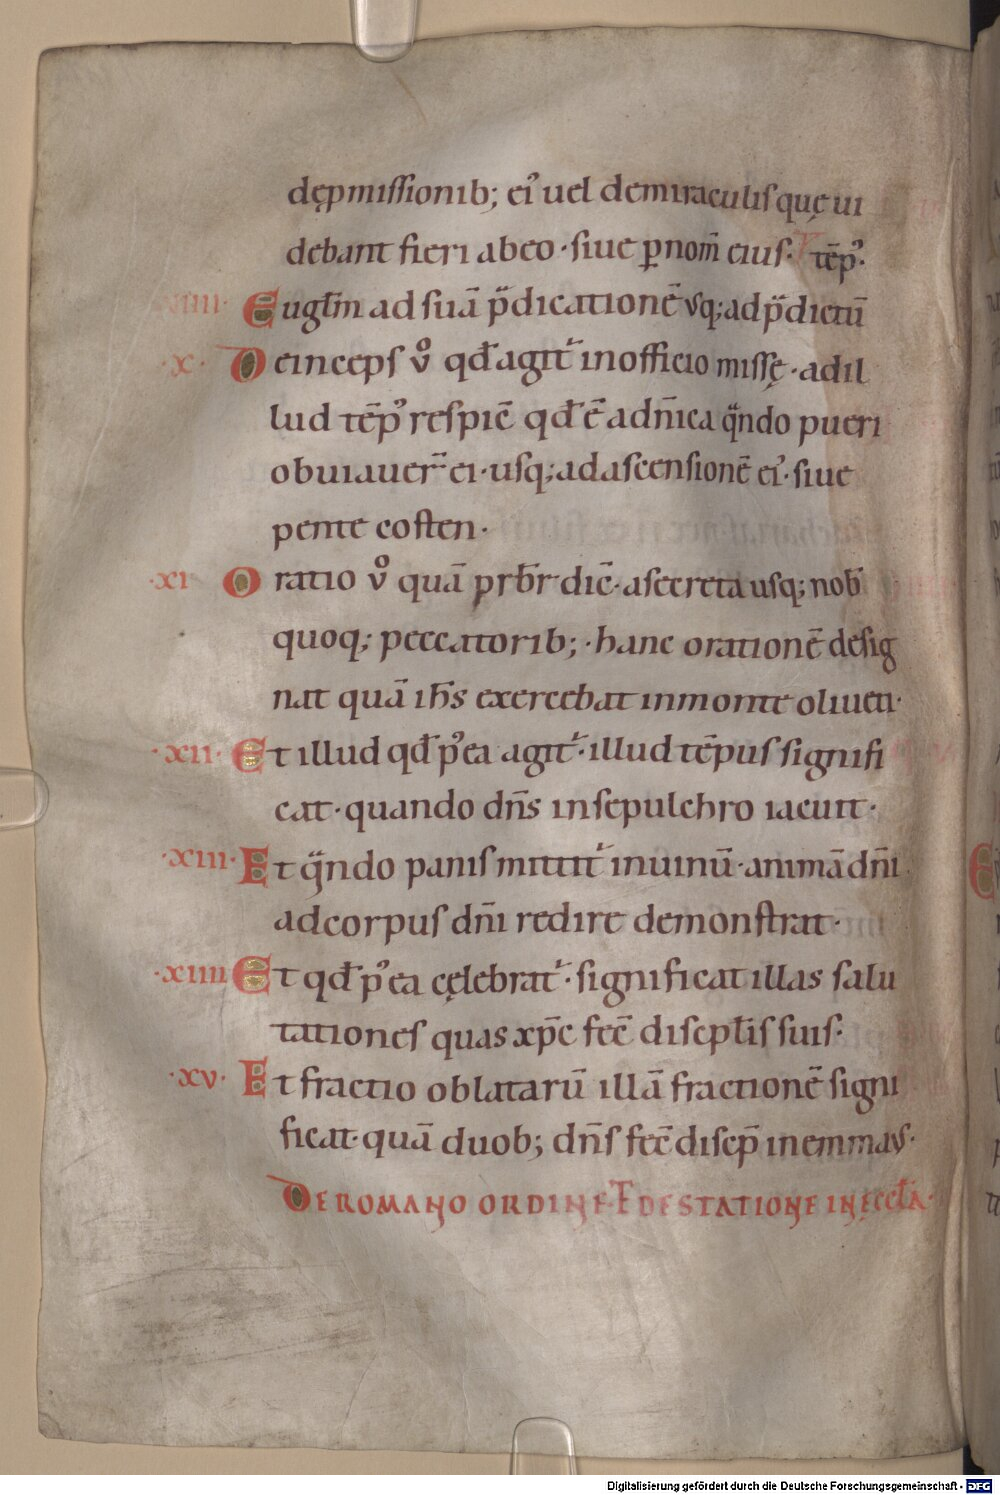 dęp̄missionib; ei᾿ uel demiraculis quę ui
debant fieri abeo · siue ꝑ nom̄ eius · tēp᾿.
·VIIII· Eugłm ad suā p̄dicationē usq; ad p̄dictū
·X· Deinceps v̊ qđ agit᾿ inofficio missę · adil
lud tēp᾿ respic̄ qđ ē adn̄ica qͣndo pueri
obuiauer̄ ei · usq; adascensionē ei᾿ · siue
pente costen ·
·XI· Oratio v̊ quā prb̄r dic̄ · asecreta usq; nob̄
quoq; peccatorib; · hanc orationē desig
nat quā ih̄s exercebat inmonte oliueti ·
·XII· Et illud qđ p᾿ea agit᾿ · illud tēpus signifi
cat · quando dn̄s insepulchro iacuit ·
·XIII· Et qͣndo panis mittit᾿ inuinū · animā dn̄i
adcorpus dn̄i redire demonstrat ·
·XIIII· Et qđ p᾿ea cęlebrat᾿ · significat illas salu
tationes quas xp̄c fec̄ discipłis suis ·
·XV· Et fractio oblatarū illā fractionē signi
ficat · quā duob; dn̄s fec̄ discip̄ inemmaus ·
DE ROMANO ORDINE ET DE STATIONE IN ĘCCŁA ·
Digitalisierung gefördert durch die Deutsche Forschungsgemeinschaft - DFG